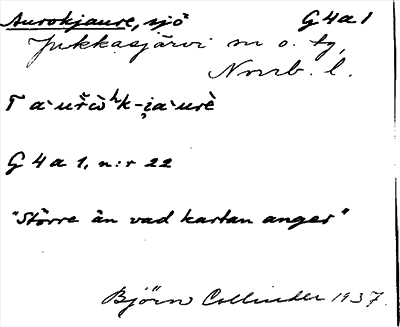 Aurokjaure, sjö G4a1
Jukkasjärvi sn o. tg,
Norrb. l.
G4a 1, n:r 22
"Större än vad kartan anger"
Björn Collinder 1937.